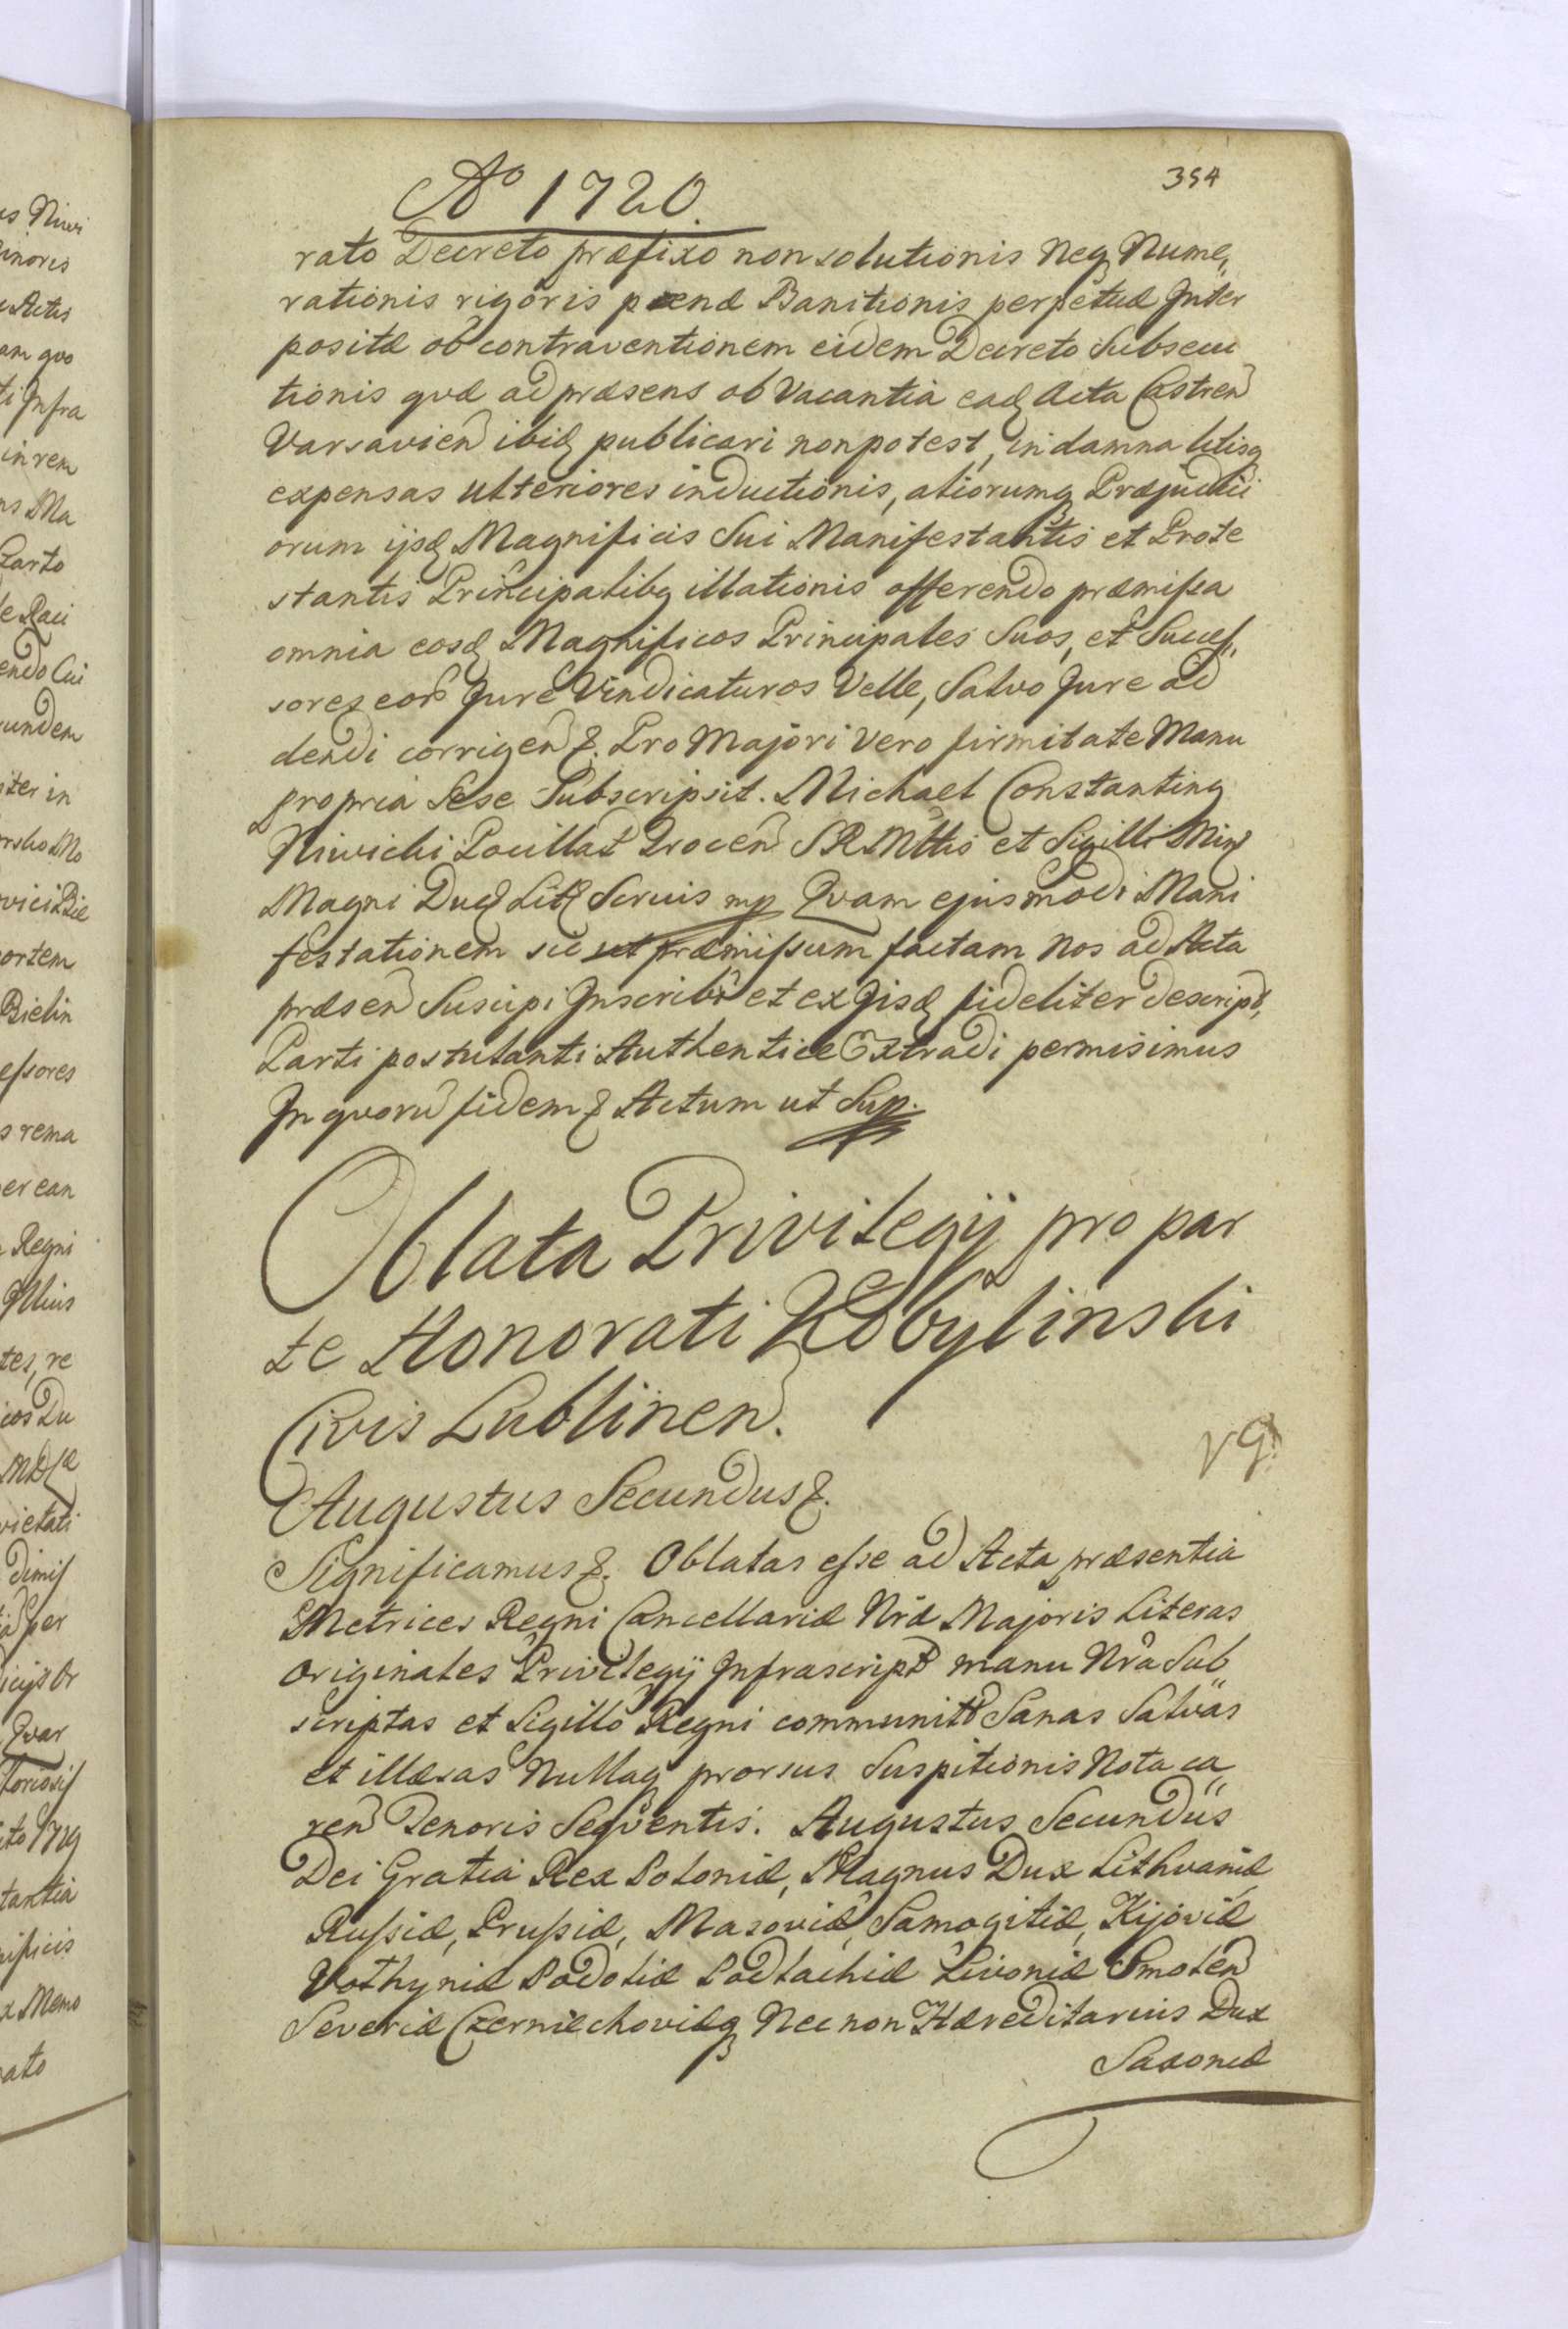 354
Aº 1720.
rato Decreto præfixo non solutionis Neq Nume„
rationis rigoris pœnæ Banitionis perpetuæ Inter
positæ ob contraventionem eidem Decreto Subsecu
tionis qvæ ad præsens ob Vacantia eaq Acta Castren
Varsavien ibiq publicari non potest, in damna litisq
expensas ulteriores inductionis, aliorumq Præjudici
orum ijsq Magnificis Sui Manifestantis et Prote
stantis Principalibq illationis offerendo præmissa
omnia eosq Magnificos Principales Suos, et Succes„
sores eor Jure Vindicaturos Velle, Salvo Jure ad
dendi corrigen &. Pro Majori Vero firmitate Manu
propria Sese Subscripsit. Michael Constantinq
Niwicki Pocillat Trocen SRMttis et Sigilli Min
Magni Duc Lit Scruis mp Qvam ejusmodi Mani
festationem sic ut præmissum factam Nos ad Acta
præsen Suscipi Inscribi et ex Iisq fideliter descript,
Parti postulanti Authentice Extradi permisimus
In qvoru fidem & Actum ut Sup.
Oblata Privilegij pro par
te Honorati Kobylinski
Civis Lublinen.
Augustus Secundus &.
Significamus &. Oblatas esse ad Acta præsentia
Metrices Regni Cancellariæ Nræ Majoris Literas
originales Privilegij Infrascript manu Nra Sub„
scriptas et Sigillo Regni communit Sanas Salvas
et illæsas Nullaq prorsus Suspitionis Nota ca„
ren Tenoris Seqventis. Augustus Secundus
Dei Gratia Rex Poloniæ, Magnus Dux Lithvaniæ
Russiæ, Prussiæ, Masoviæ, Samogitiæ, Kijoviæ
Volhyniæ Podoliæ Podlachiæ Livoniæ Smolen
Severiæ Czerniechoviæq Nec non Hæreditarius Dux
Saxoniæ